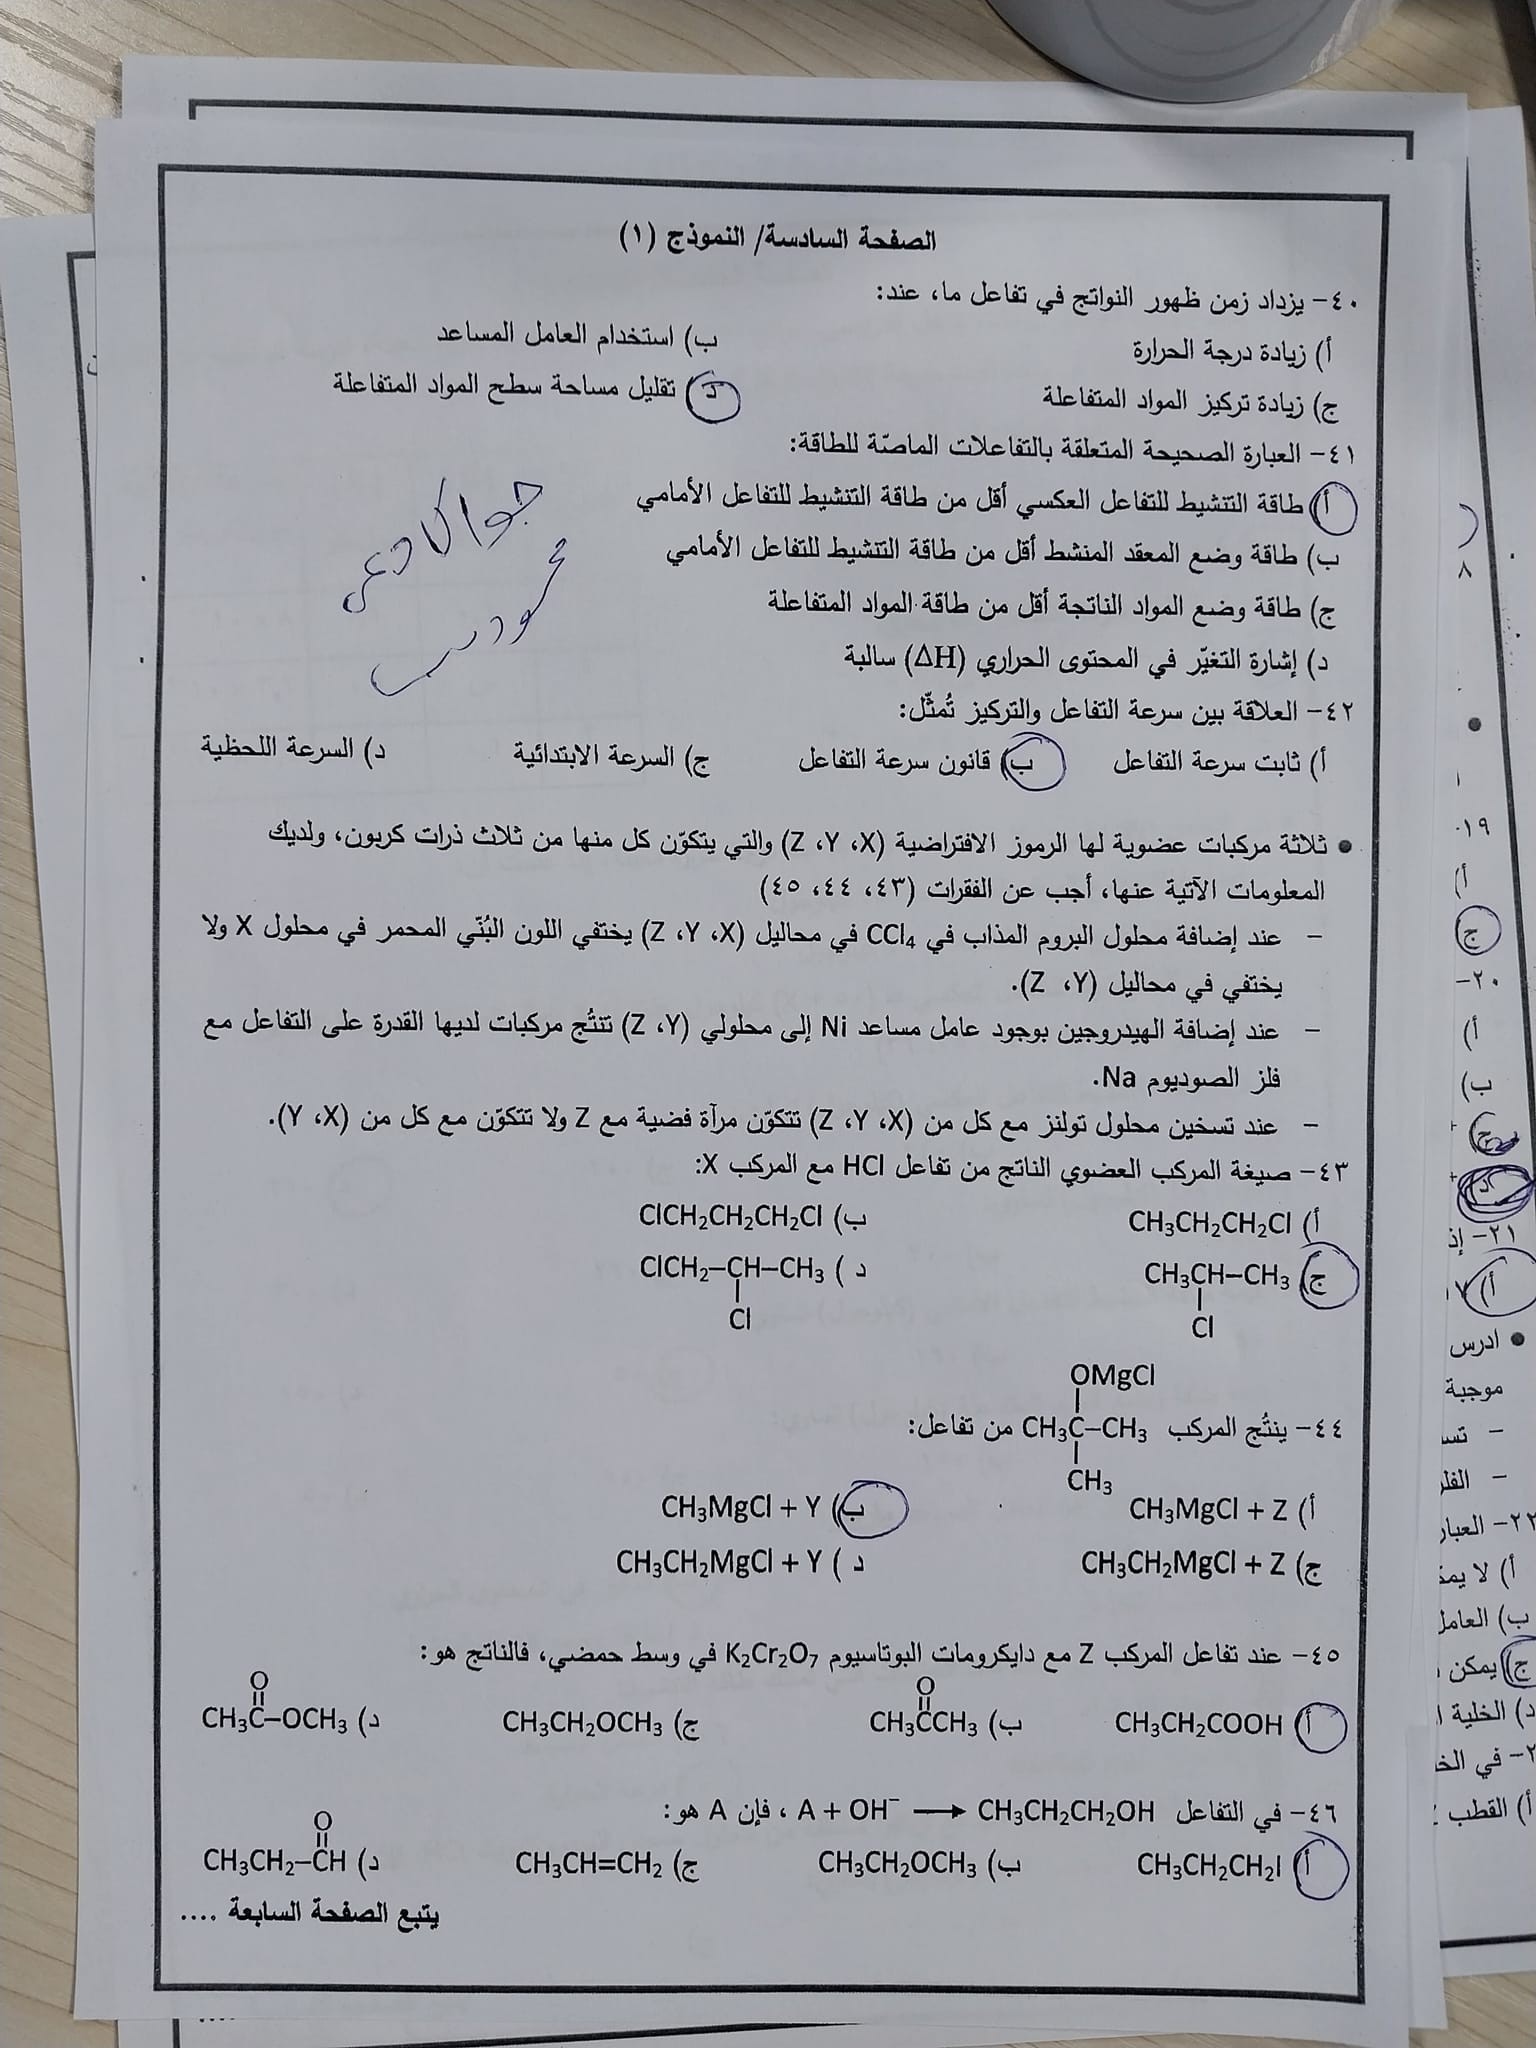 الصفحة السادسة/ النموذج (١)
٤٠- يزداد زمن ظهور النواتج في تفاعل ما، عند:
أ) زيادة درجة الحرارة ب) استخدام العامل المساعد
ج) زيادة تركيز المواد المتفاعلة د) تقليل مساحة سطح المواد المتفاعلة
٤١- العبارة الصحيحة المتعلقة بالتفاعلات الماصّة للطاقة:
أ) طاقة التنشيط للتفاعل العكسي أقل من طاقة التنشيط للتفاعل الأمامي
ب) طاقة وضع المعقد المنشط أقل من طاقة التنشيط للتفاعل الأمامي
ج) طاقة وضع المواد الناتجة أقل من طاقة المواد المتفاعلة
د) إشارة التغيّر في المحتوى الحراري (ΔH) سالبة
٤٢- العلاقة بين سرعة التفاعل والتركيز تُمثّل:
أ) ثابت سرعة التفاعل ب) قانون سرعة التفاعل ج) السرعة الابتدائية د) السرعة اللحظية
• ثلاثة مركبات عضوية لها الرموز الافتراضية (X، Y، Z) والتي يتكوّن كل منها من ثلاث ذرات كربون، ولديك
المعلومات الآتية عنها، أجب عن الفقرات (٤٣، ٤٤، ٤٥)
- عند إضافة محلول البروم المذاب في CCl₄ في محاليل (X، Y، Z) يختفي اللون البُنّي المحمر في محلول X ولا
يختفي في محاليل (Y، Z).
- عند إضافة الهيدروجين بوجود عامل مساعد Ni إلى محلولي (Y، Z) تنتُج مركبات لديها القدرة على التفاعل مع
فلز الصوديوم Na.
- عند تسخين محلول تولنز مع كل من (X، Y، Z) تتكوّن مرآة فضية مع Z ولا تتكوّن مع كل من (X، Y).
٤٣- صيغة المركب العضوي الناتج من تفاعل HCl مع المركب X:
أ) CH₃CH₂CH₂Cl ب) ClCH₂CH₂CH₂Cl
ج) CH₃CH–CH₃ د) ClCH₂–CH–CH₃
Cl Cl
OMgCl
٤٤- ينتُج المركب CH₃C–CH₃ من تفاعل:
CH₃
أ) CH₃MgCl + Z ب) CH₃MgCl + Y
ج) CH₃CH₂MgCl + Z د) CH₃CH₂MgCl + Y
٤٥- عند تفاعل المركب Z مع دايكرومات البوتاسيوم K₂Cr₂O₇ في وسط حمضي، فالناتج هو:
O O
أ) CH₃CH₂COOH ب) CH₃CCH₃ ج) CH₃CH₂OCH₃ د) CH₃C–OCH₃
٤٦- في التفاعل A + OH⁻ ⟶ CH₃CH₂CH₂OH ، فإن A هو:
O
أ) CH₃CH₂CH₂I ب) CH₃CH₂OCH₃ ج) CH₃CH=CH₂ د) CH₃CH₂–CH
يتبع الصفحة السابعة ....